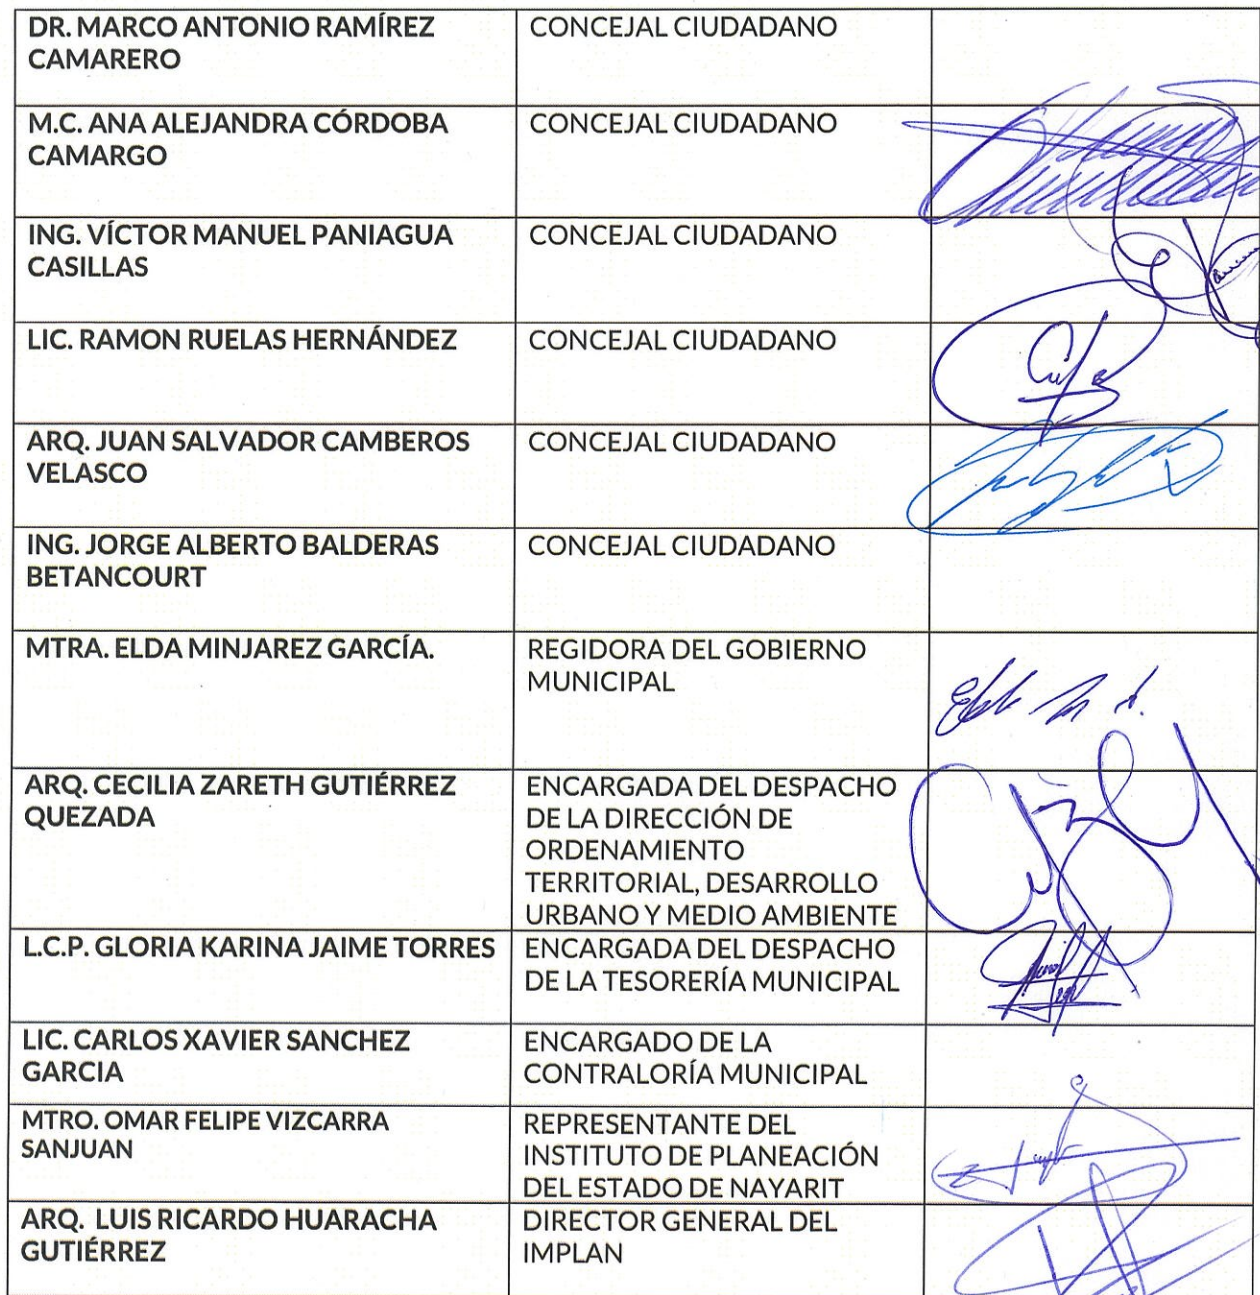 DR. MARCO ANTONIO RAMÍREZ
CAMARERO
CONCEJAL CIUDADANO
M.C. ANA ALEJANDRA CÓRDOBA
CAMARGO
CONCEJAL CIUDADANO
ING. VÍCTOR MANUEL PANIAGUA
CASILLAS
CONCEJAL CIUDADANO
LIC. RAMON RUELAS HERNÁNDEZ
CONCEJAL CIUDADANO
ARQ. JUAN SALVADOR CAMBEROS
VELASCO
CONCEJAL CIUDADANO
ING. JORGE ALBERTO BALDERAS
BETANCOURT
CONCEJAL CIUDADANO
MTRA. ELDA MINJAREZ GARCÍA.
REGIDORA DEL GOBIERNO
MUNICIPAL
ARQ. CECILIA ZARETH GUTIÉRREZ
QUEZADA
ENCARGADA DEL DESPACHO
DE LA DIRECCIÓN DE
ORDENAMIENTO
TERRITORIAL, DESARROLLO
URBANO Y MEDIO AMBIENTE
L.C.P. GLORIA KARINA JAIME TORRES
ENCARGADA DEL DESPACHO
DE LA TESORERÍA MUNICIPAL
LIC. CARLOS XAVIER SANCHEZ
GARCIA
ENCARGADO DE LA
CONTRALORÍA MUNICIPAL
MTRO. OMAR FELIPE VIZCARRA
SANJUAN
REPRESENTANTE DEL
INSTITUTO DE PLANEACIÓN
DEL ESTADO DE NAYARIT
ARQ. LUIS RICARDO HUARACHA
GUTIÉRREZ
DIRECTOR GENERAL DEL
IMPLAN